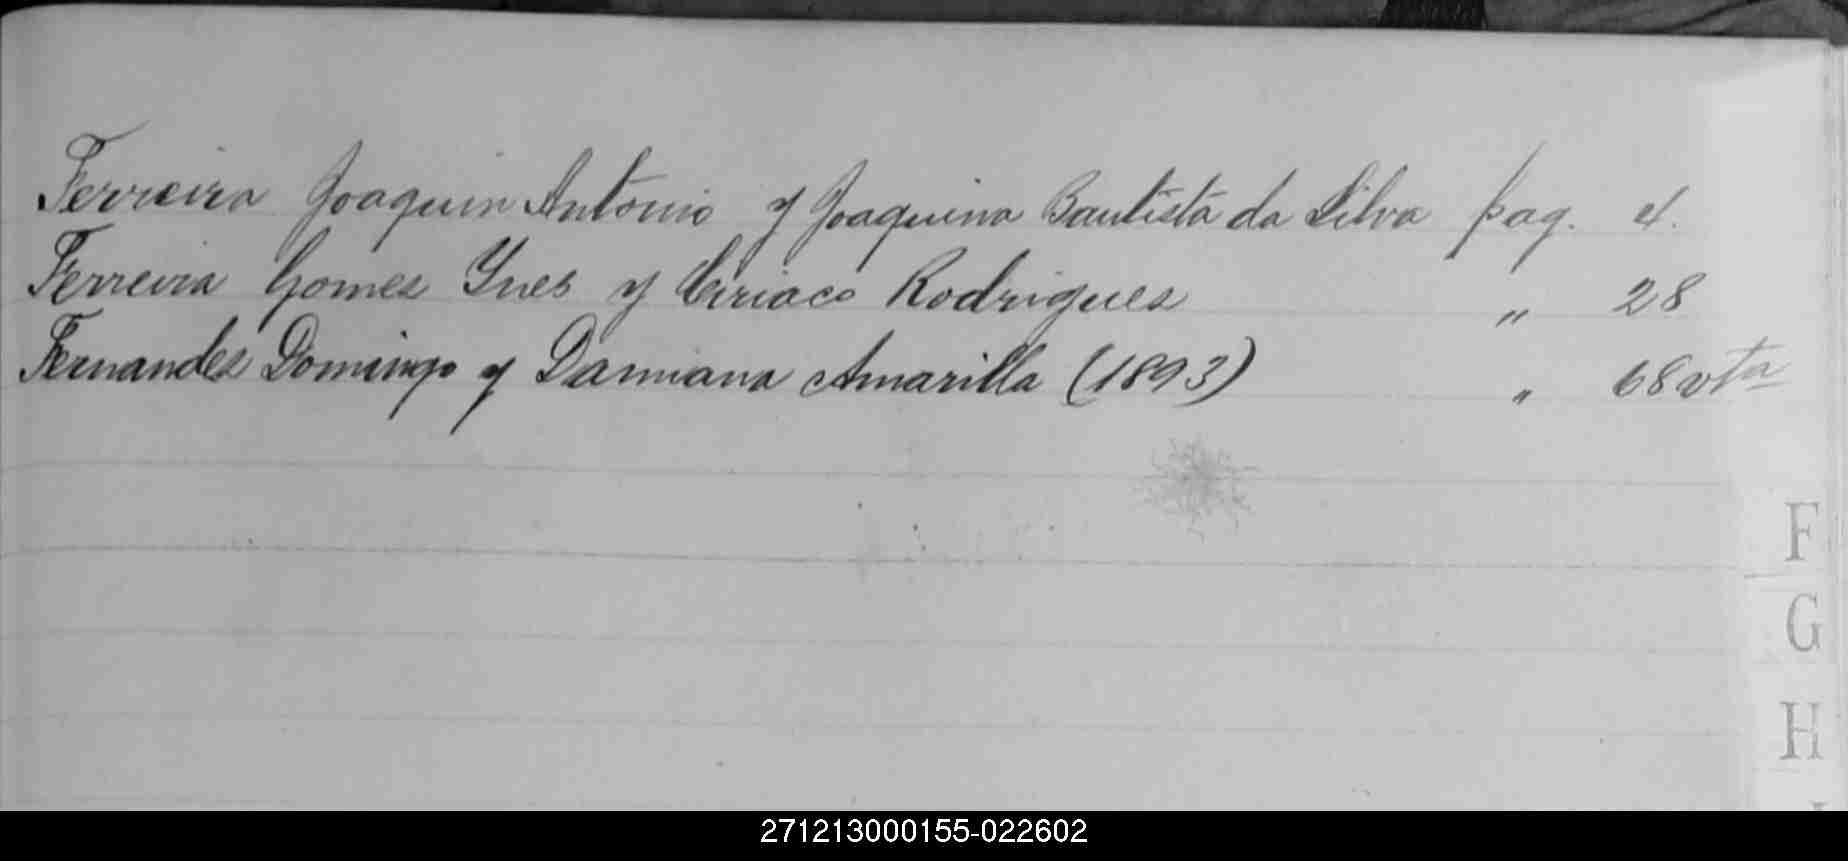 Ferreira Joaquin Antonio y Joaquina Bautista da Silva pag. 4.
Ferreira Gomes Ynes y Ciriaco Rodrigues " 28
Fernandes Domingo y Damiana Amarilla (1893) " 68 vta
F
G
H
271213000155-022602